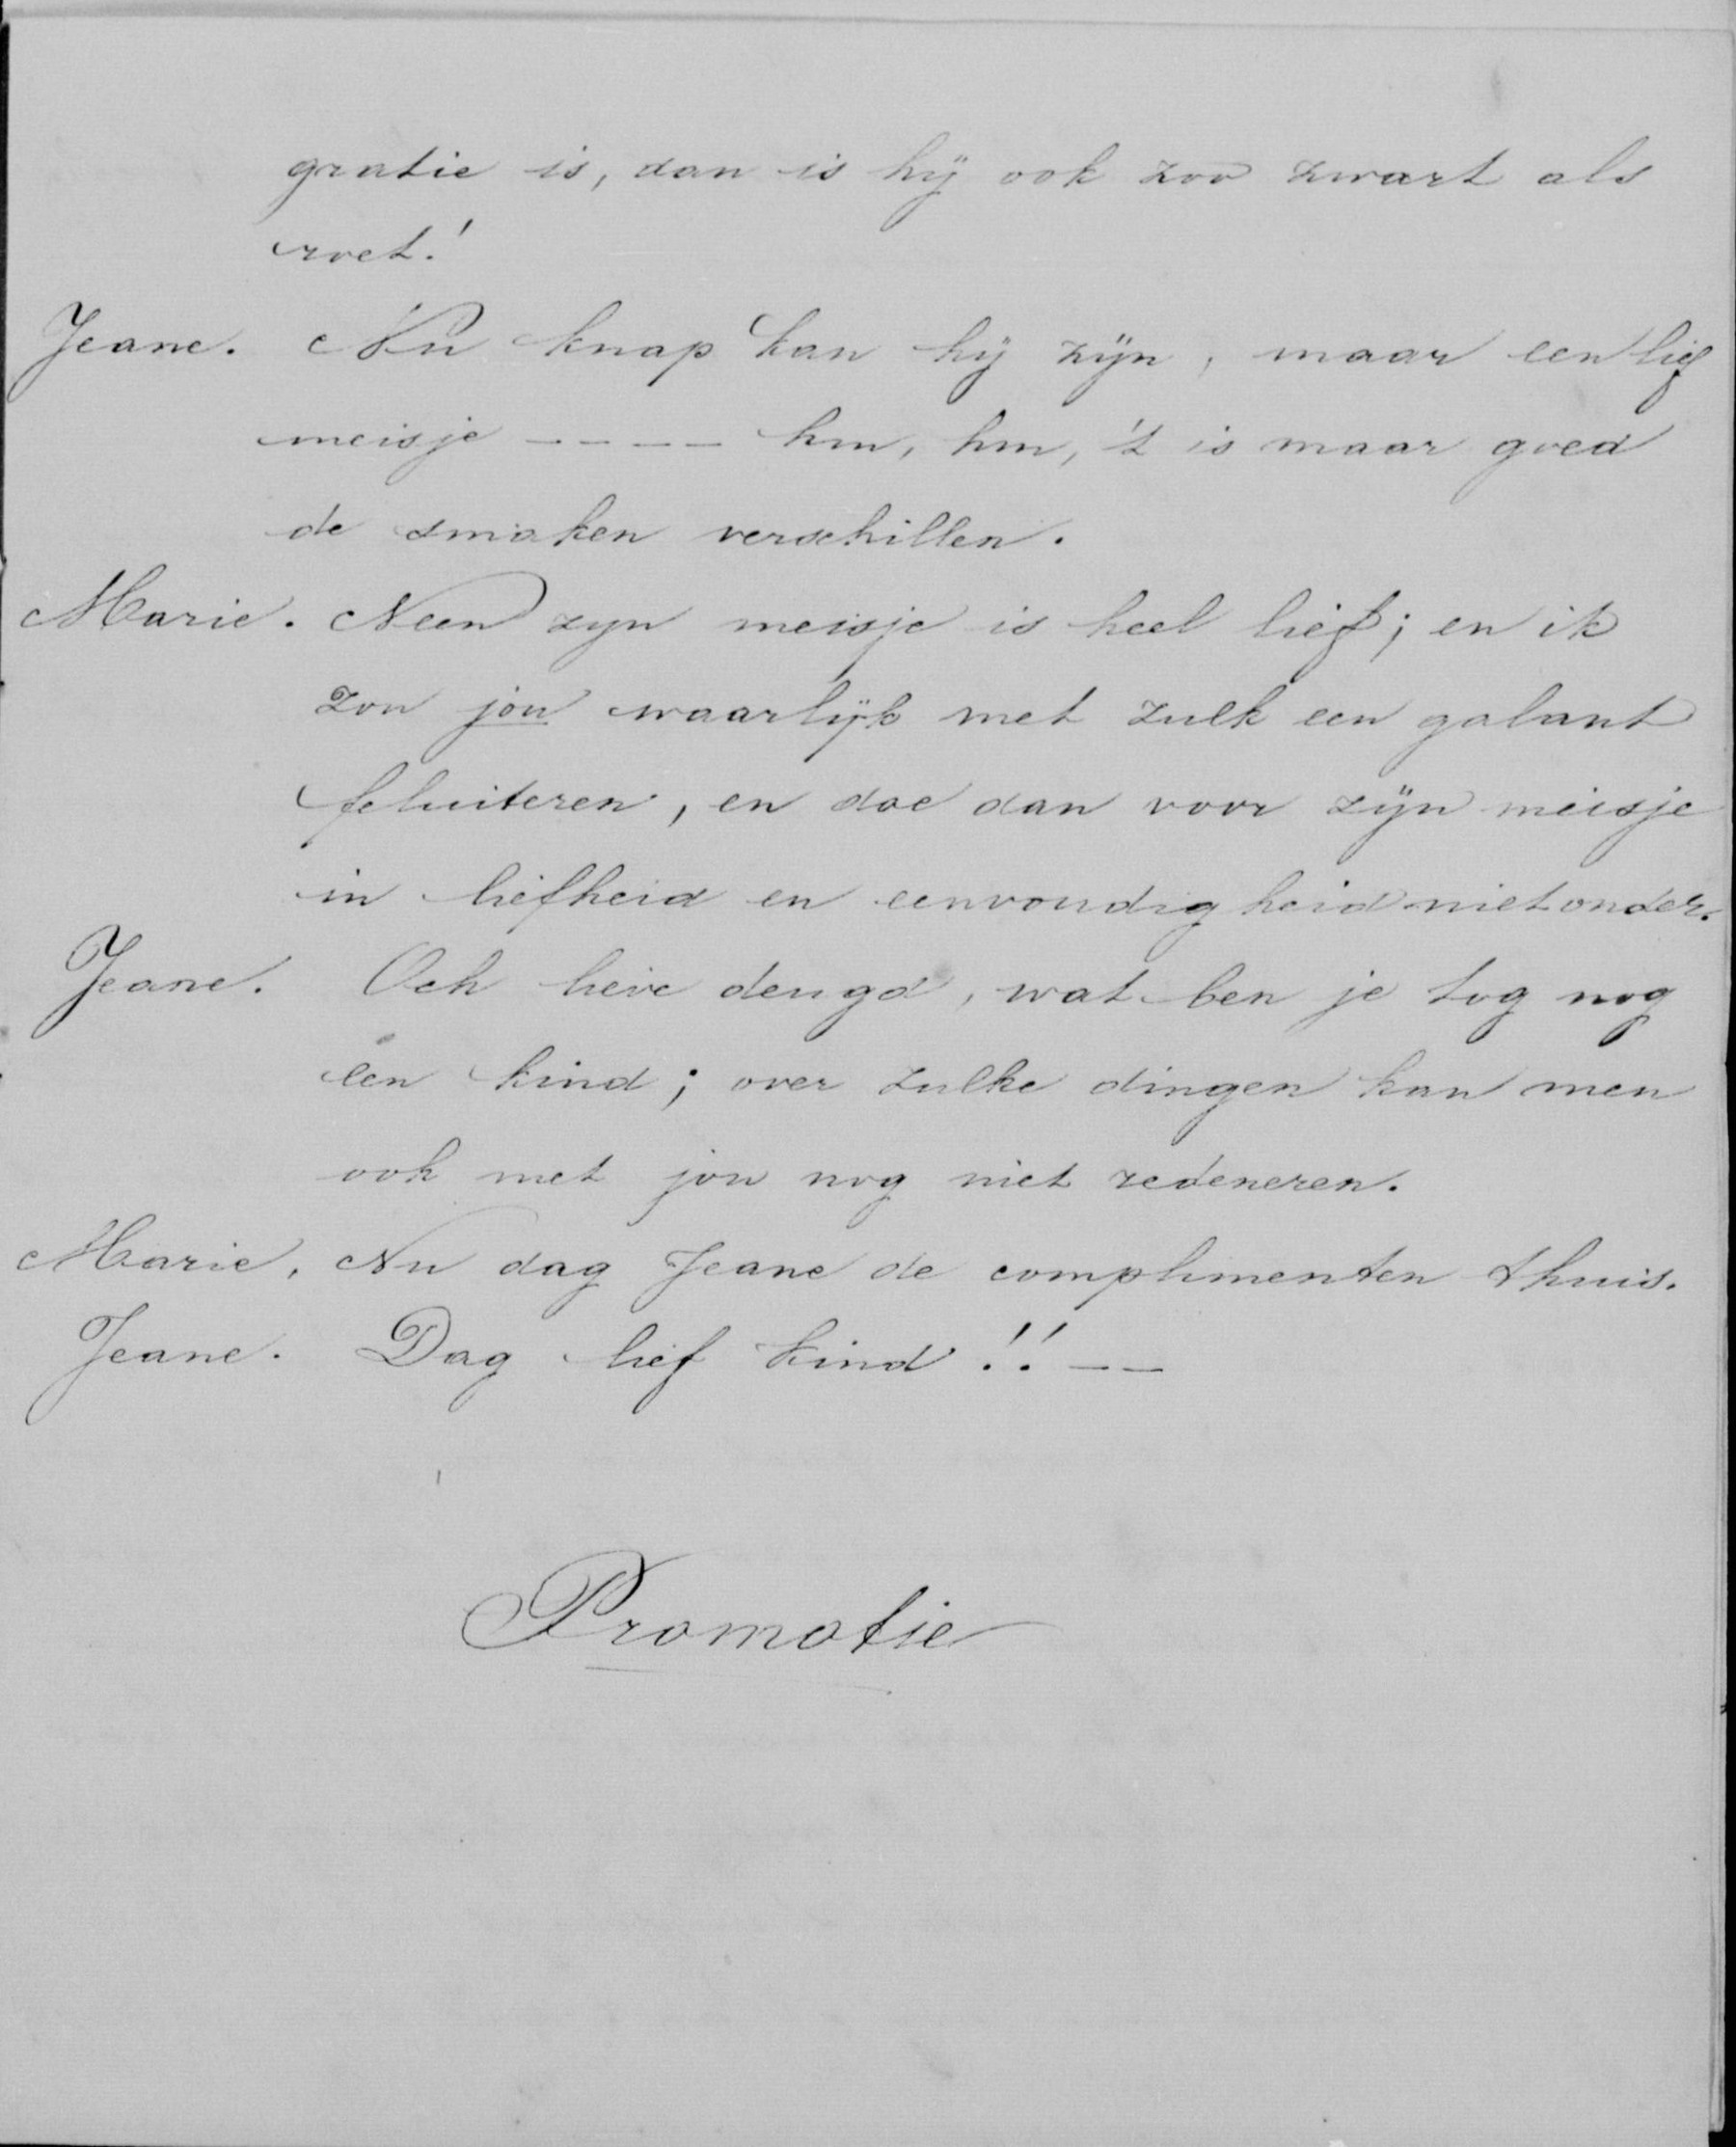 gratie is, dan is hij ook zoo zwart als
roet!
Jeane. Nu knap kan hij zijn, maar een lief
meisje ----- hm, hm, 't is maar goed
de smaken verschillen.
Marie. Neen zyn meisje is heel lief; en ik
zou jou waarlijk met zulk een galant
feluiteren, en doe dan voor zijn meisje
in liefheid en eenvoudigheid niet onder.
Jeane. Och lieve deugd, wat ben je tog nog
een kind; over zulke dingen kan men
ook met jou nog niet redeneren.
Marie. Nu dag Jeane de complimenten thuis.
Jeane. Dag lief kind!! --
Promotie